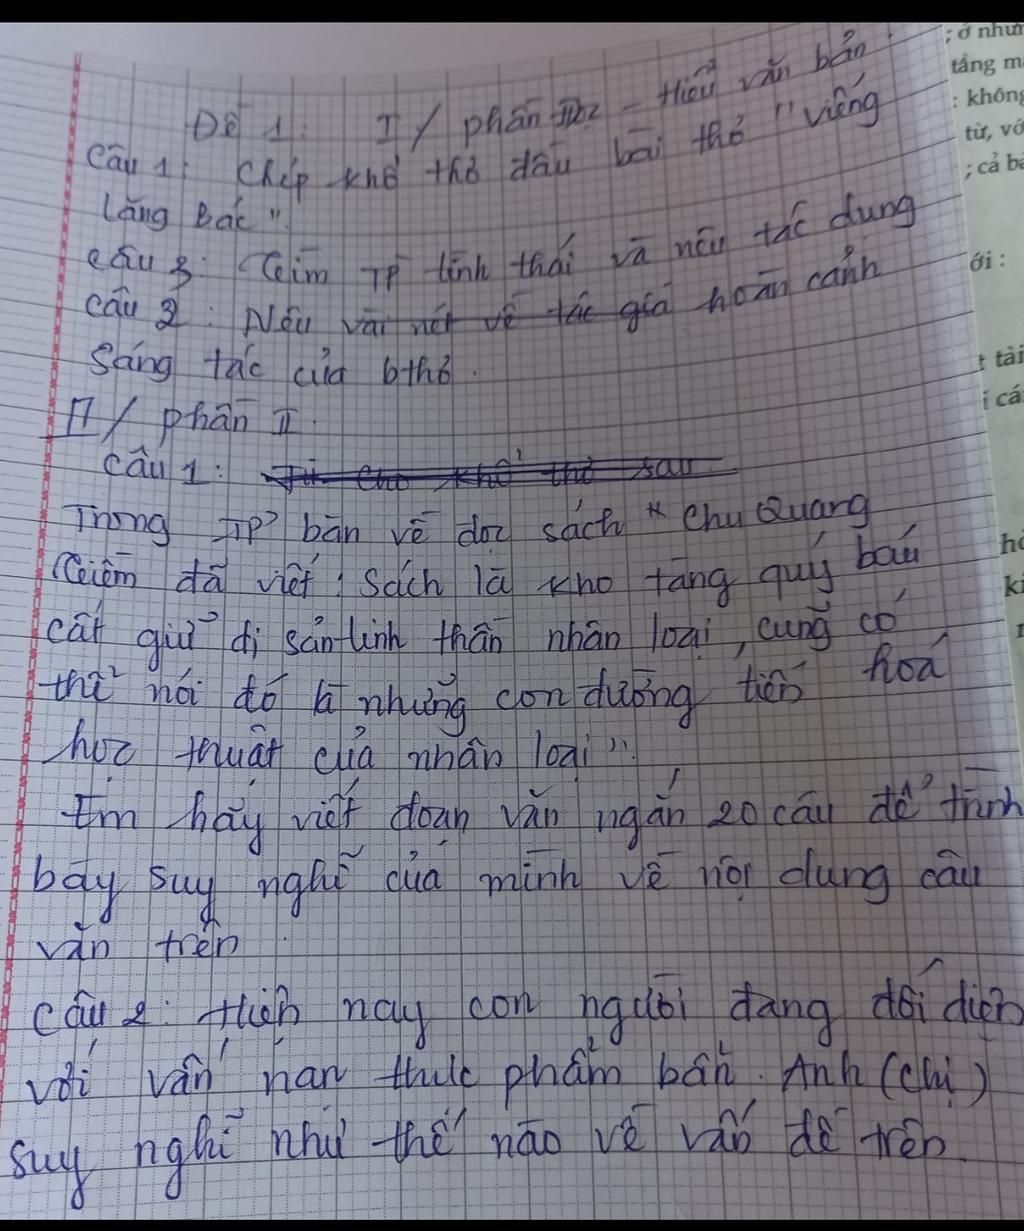 Đề 1: I/ phần Đọc - Hiểu văn bản
Câu 1: Chép khổ thơ đầu bài thơ "viếng
lăng Bác".
câu 3: Tìm TP tình thái và nêu tác dung
câu 2: Nêu vài nét về tác giả hoàn cảnh
Sáng tác của bthơ.
II/ phần II.
Câu 1: Từ cho khổ thơ sau
Trong TP bàn về đọc sách " Chu Quang
Tiềm đã viết: Sách là kho tàng quý báu
cất giữ di sản tinh thần nhân loại, cũng có
thể nói đó là những con đường tiến hoá
học thuật của nhân loại".
Em hãy viết đoạn văn ngắn 20 câu để trình
bày suy nghĩ của mình về nội dung câu
văn trên.
Câu 2: Hiện nay con người đang đối diện
với vấn nạn thực phẩm bẩn. Anh (chị)
suy nghĩ như thế nào về vấn đề trên.
; ở nhữn
tảng m
: không
từ, vớ
; cả b
ới :
t tài
i cá